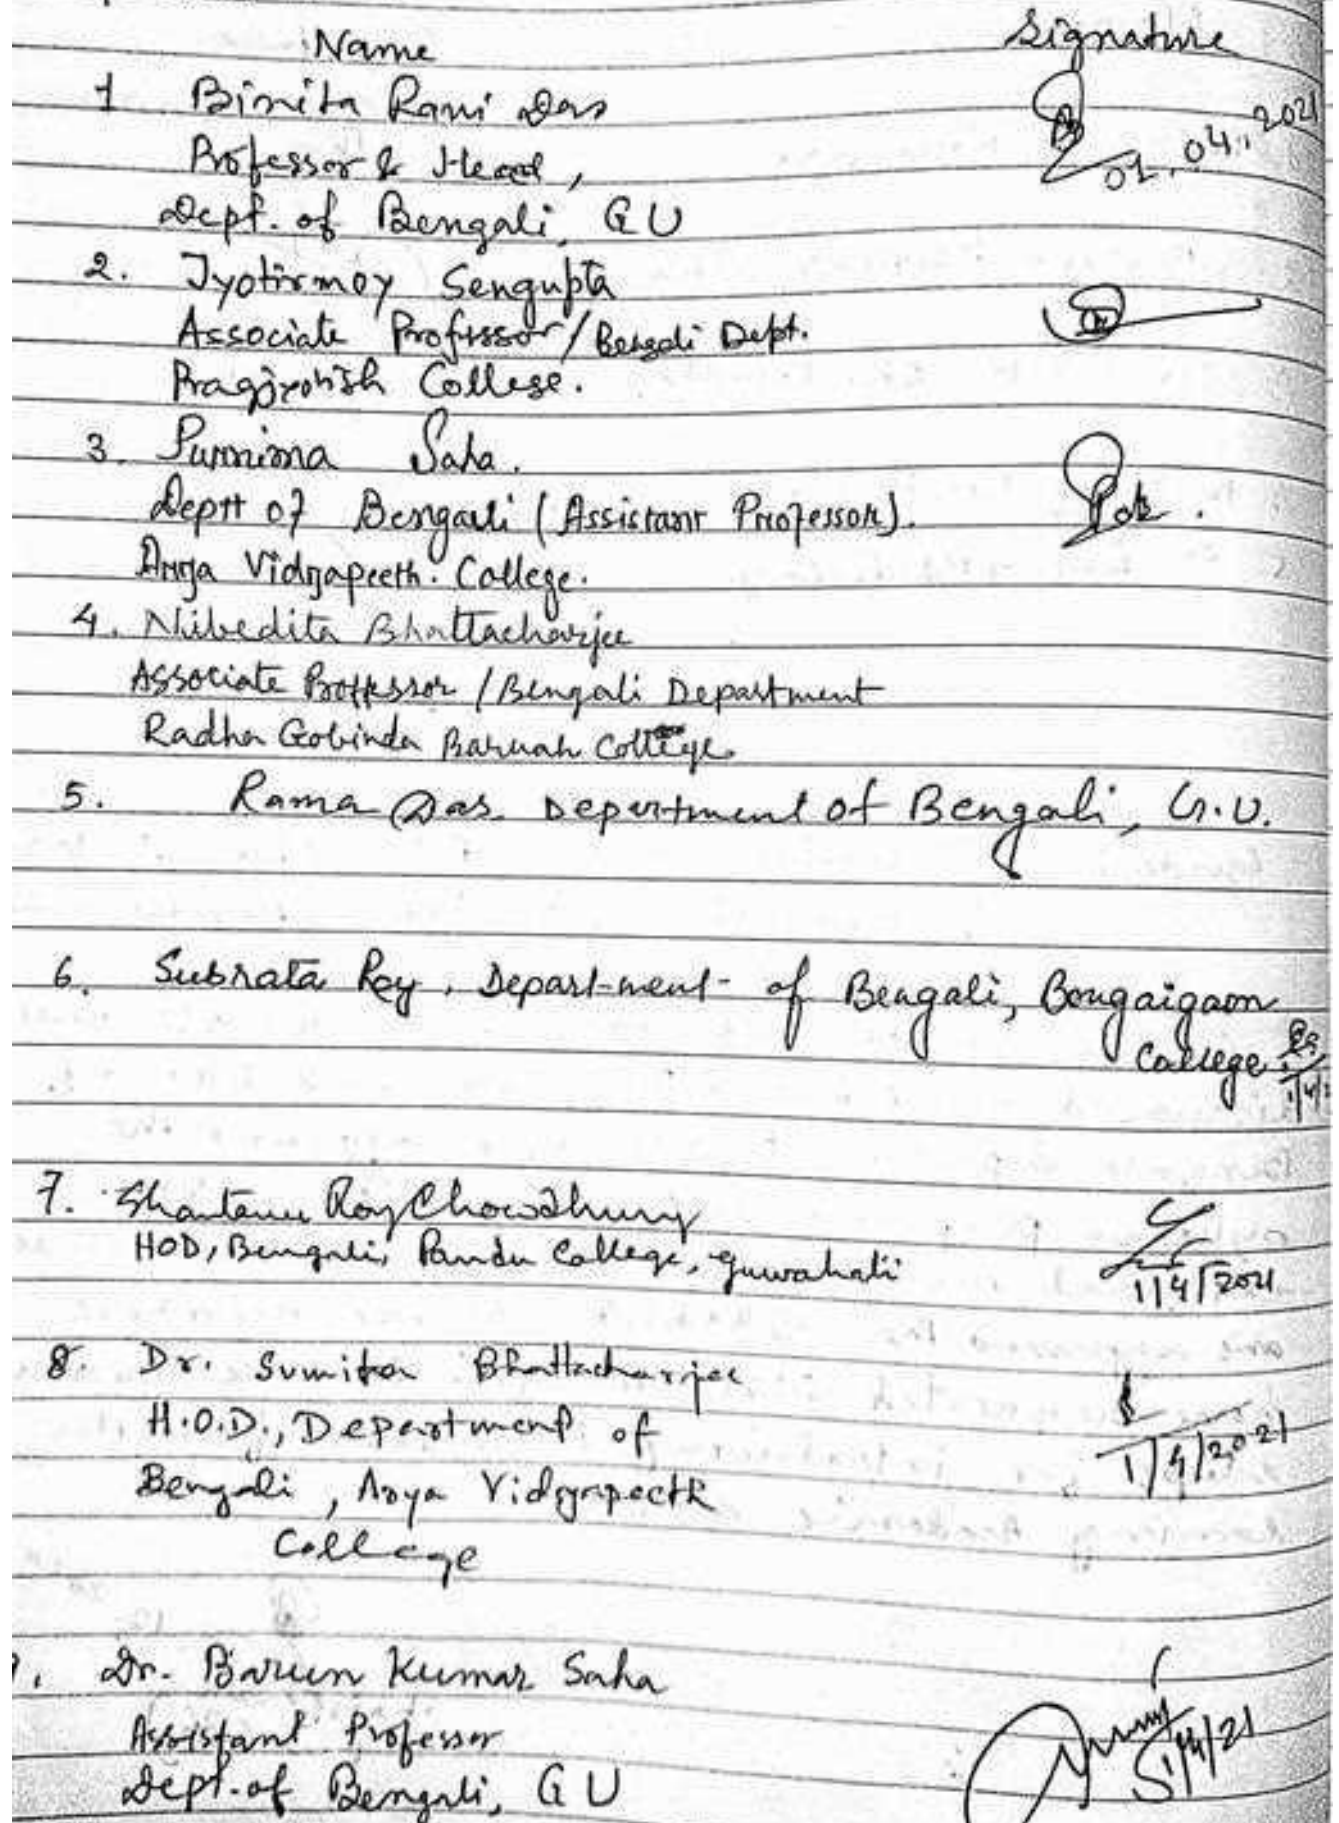 Name Signature
1 Binita Rani Das
Professor & Head,
01.04.2021
Dept. of Bengali, GU
2. Jyotirmoy Sengupta
Associate Professor/Bengali Dept.
Pragjyotish College.
3. Purnima Saha.
Deptt of Bengali (Assistant Professor).
Arya Vidyapeeth. College.
4. Nibedita Bhattacharjee
Associate Professor / Bengali Department
Radha Gobinda Baruah College
5. Rama Das. Department of Bengali, G.U.
6. Subrata Roy. Department of Bengali, Bongaigaon
College
7. Shantanu Roy Chowdhury
HOD, Bengali, Pandu College, Guwahati
1/4/2021
8. Dr. Sumita Bhattacharjee
H.O.D., Department of
1/4/2021
Bengali, Arya Vidyapeeth
College
Dr. Barun Kumar Saha
Assistant Professor
1/4/21
Dept. of Bengali, GU